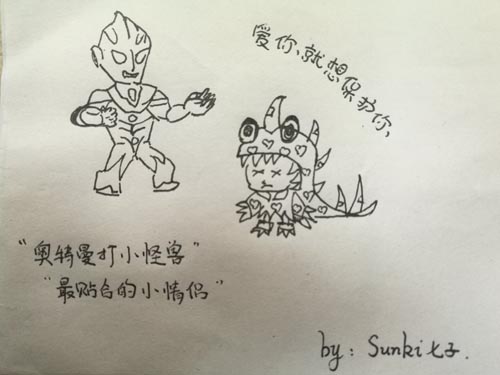 爱你、就想保护你、
"奥特曼打小怪兽"
"最贴合的小情侣"
by: Sunki七子.